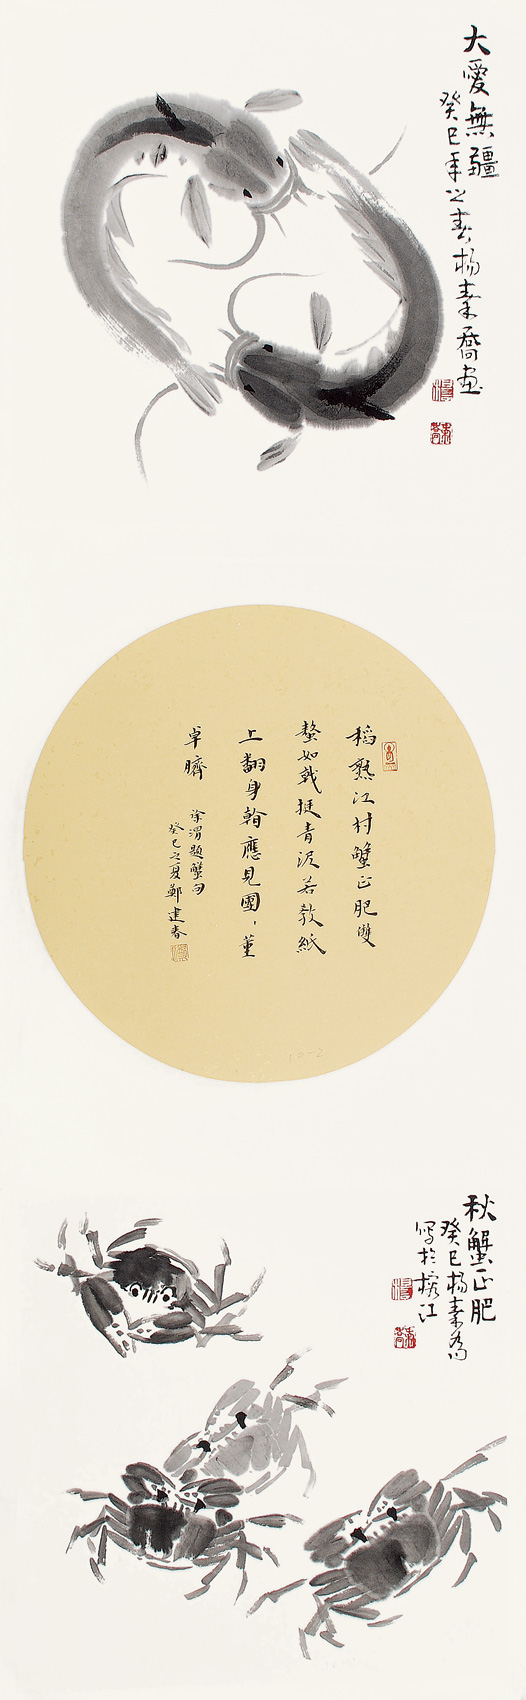 大愛無疆
癸巳年之春杨素喬画
稻熟江村蟹正肥雙
螯如戟挺青泥若教紙
上翻身看應見團、董
卓臍
徐渭題蟹句
癸巳之夏鄭建春
秋蟹正肥
癸巳杨素喬
写於榕江